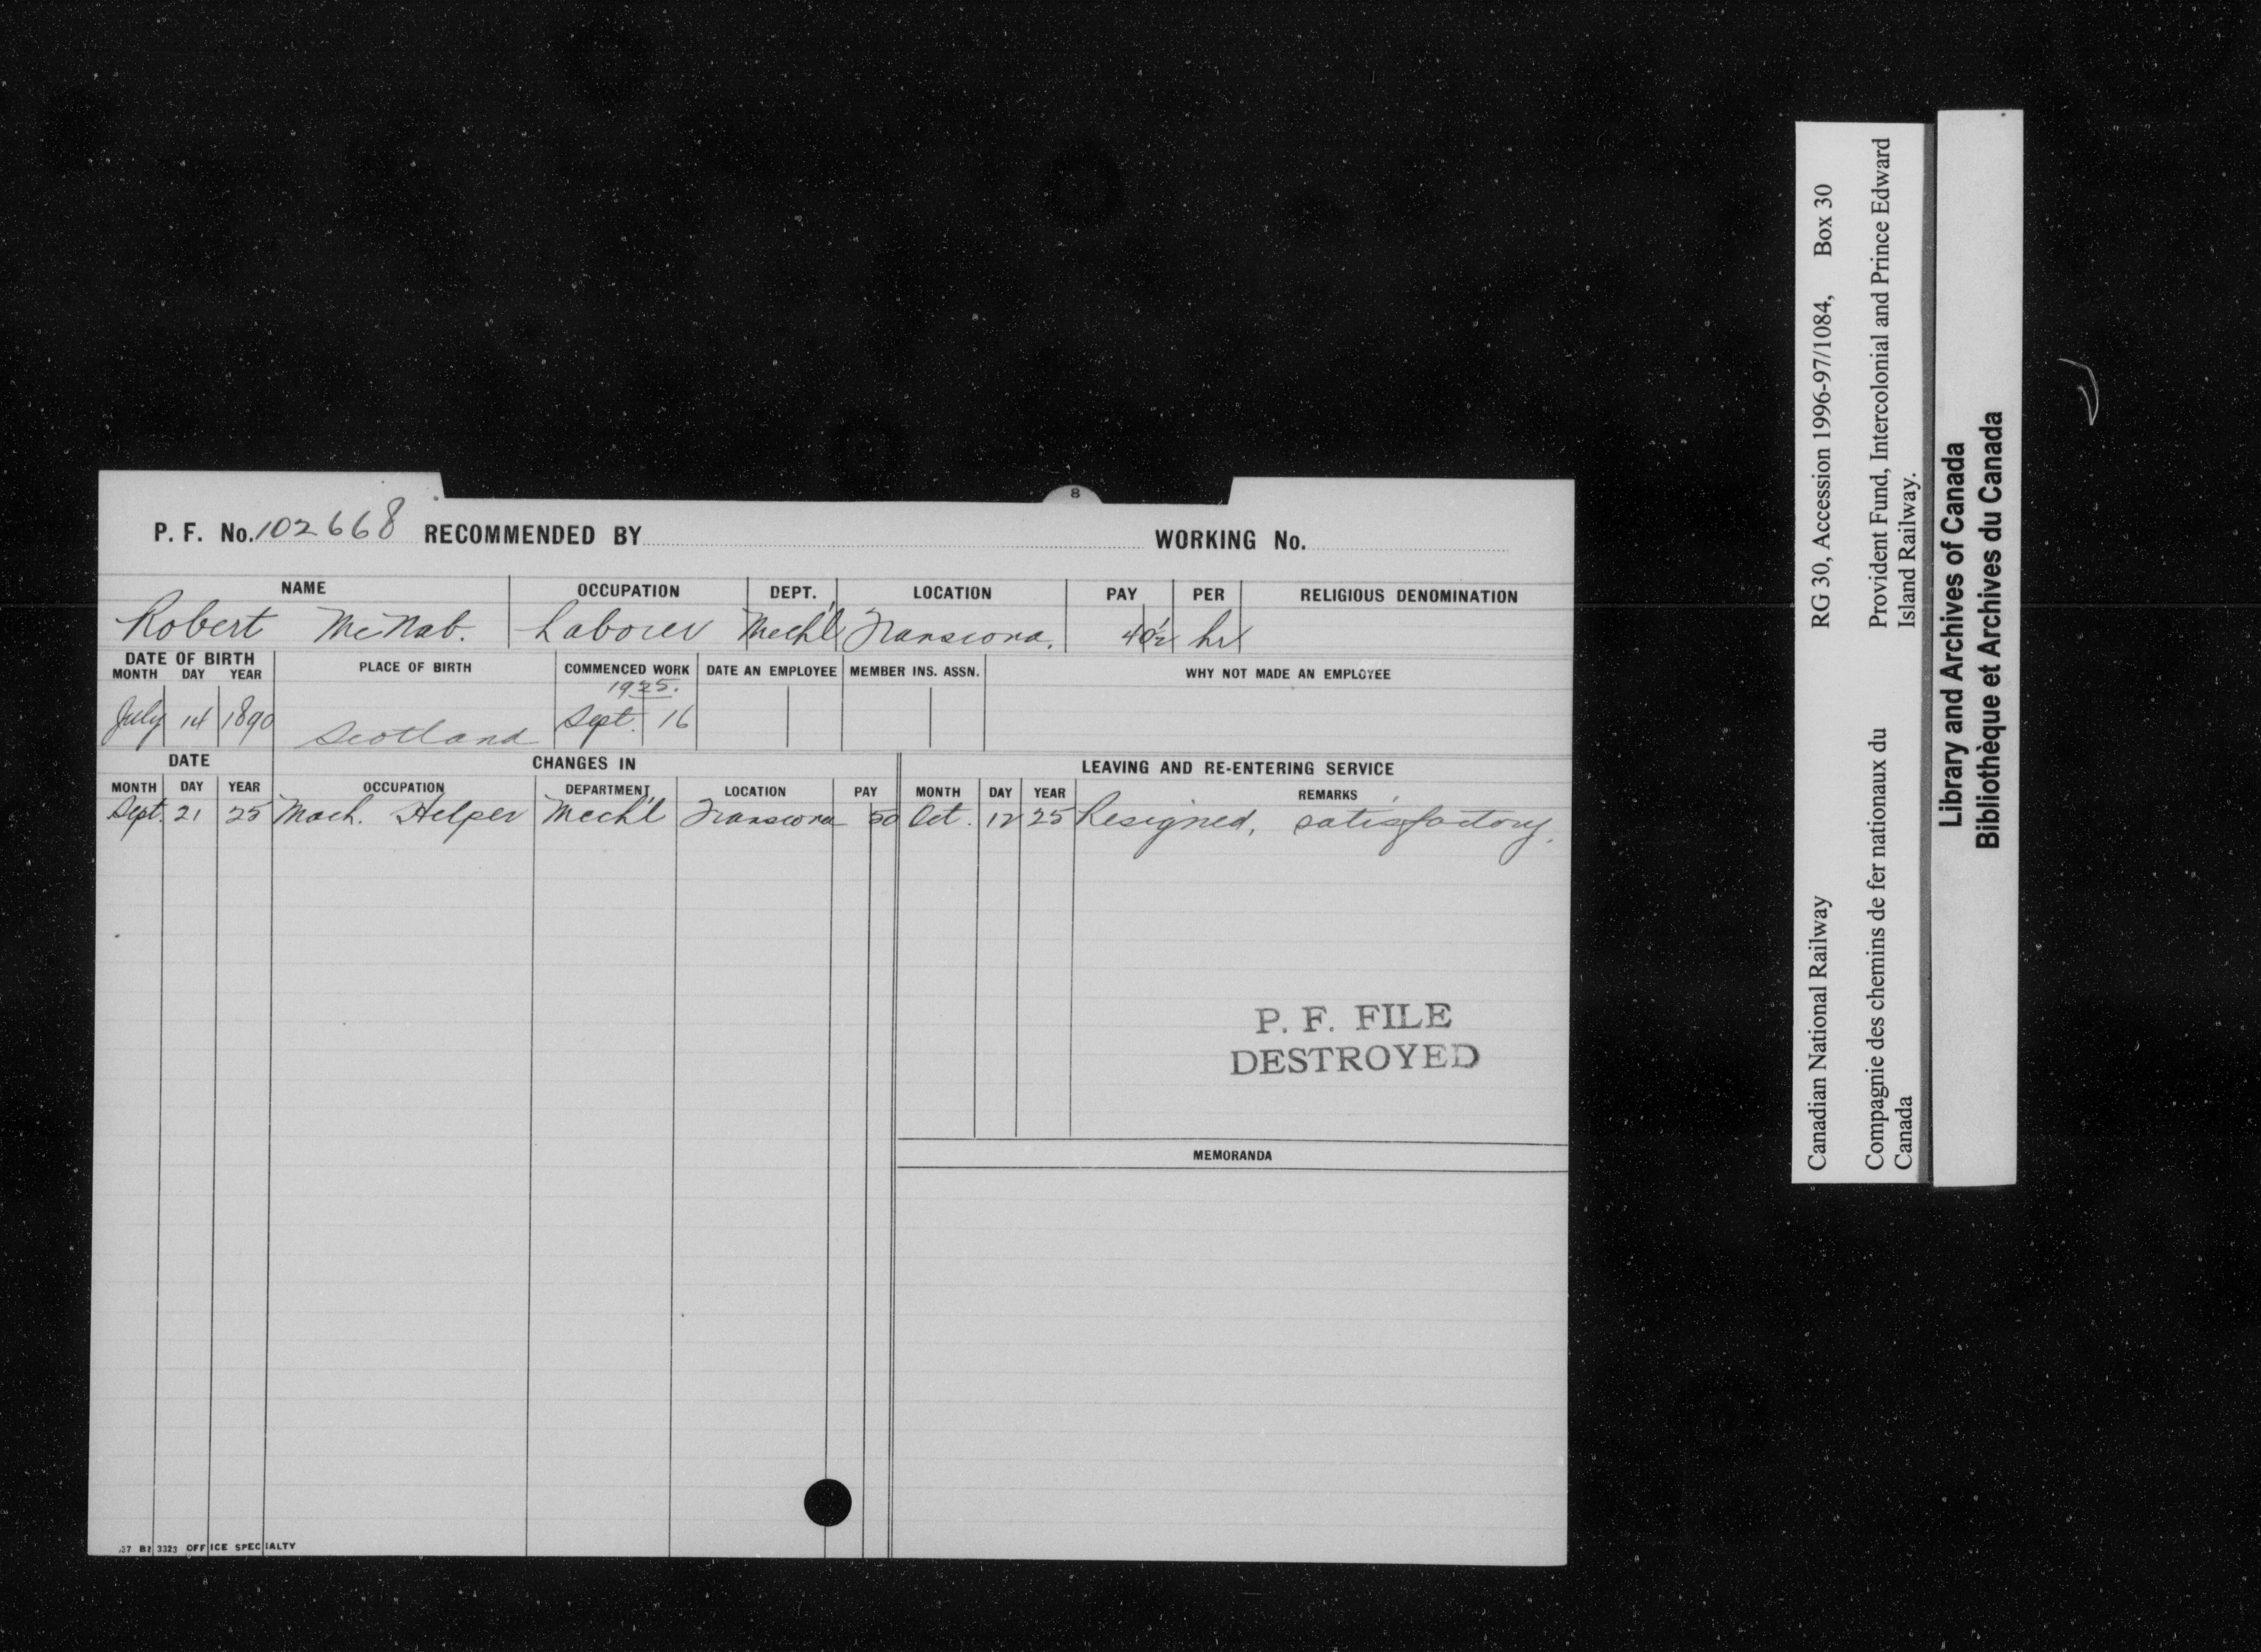 8
P. F. No. 102668 RECOMMENDED BY WORKING No.
NAME OCCUPATION DEPT. LOCATION PAY PER RELIGIOUS DENOMINATION
Robert McNab. Laborer Mech'l Transcona. 40½ hr
DATE OF BIRTH PLACE OF BIRTH COMMENCED WORK DATE AN EMPLOYEE MEMBER INS. ASSN. WHY NOT MADE AN EMPLOYEE
MONTH DAY YEAR
1925.
July 14 1890 Scotland Sept. 16
DATE CHANGES IN LEAVING AND RE-ENTERING SERVICE
MONTH DAY YEAR OCCUPATION DEPARTMENT LOCATION PAY MONTH DAY YEAR REMARKS
Sept. 21 25 Mach. Helper Mech'l Transcona 50 Oct. 12 25 Resigned, satisfactory.
P. F. FILE
DESTROYED
MEMORANDA
3323 OFFICE SPECIALTY
Canadian National Railway RG 30, Accession 1996-97/1084, Box 30
Compagnie des chemins de fer nationaux du Provident Fund, Intercolonial and Prince Edward
Canada Island Railway.
Library and Archives of Canada
Bibliothèque et Archives du Canada